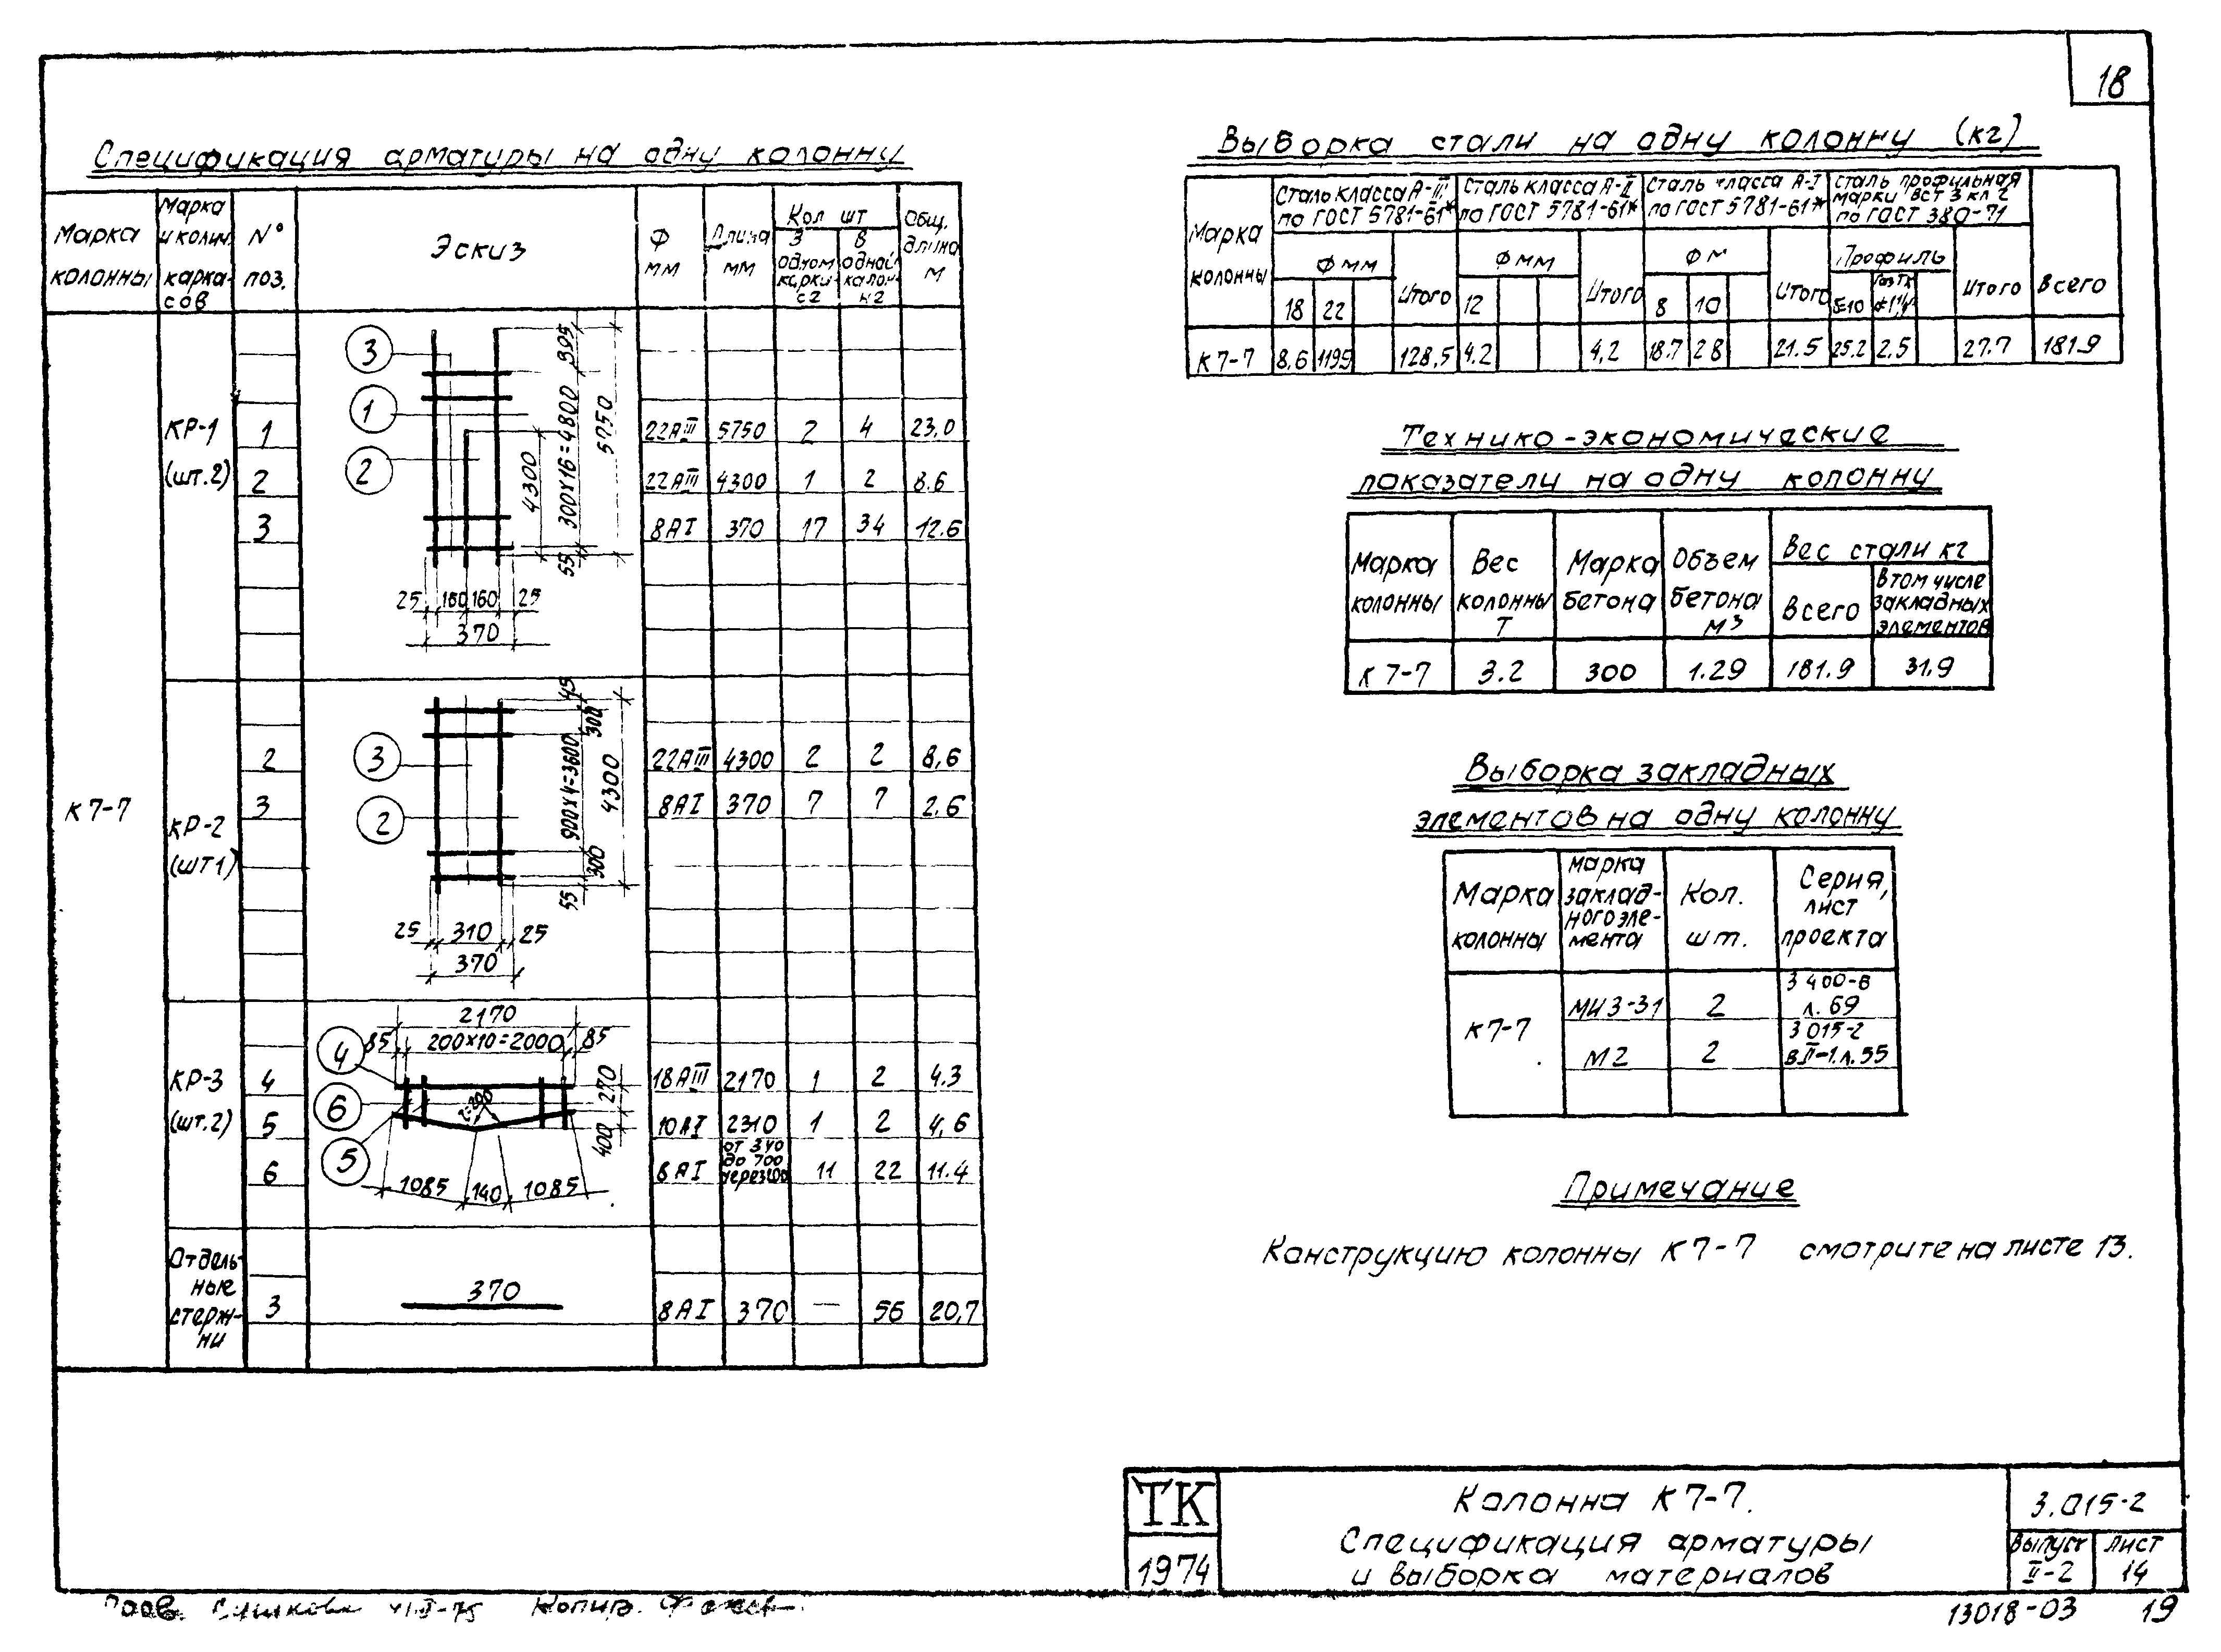 18
Спецификация арматуры на одну колонну
Марка колонны
Марка и колич. карка-сов
N° поз.
Эскиз
Ф мм
Длина мм
Кол шт
В одном карка-се
В одной колон-не
Общ. длина м
К7-7
КР-1 (шт.2)
3
1
2
395
300х16=4800
5750
4300
55
25 160 160 25
370
1 22АIII 5750 2 4 23,0
2 22АIII 4300 1 2 8.6
3 8АI 370 17 34 12.6
КР-2 (шт1)
3
2
45
300
900х4=3600
4300
300
55
25 310 25
370
2 22АIII 4300 2 2 8,6
3 8АI 370 7 7 2.6
КР-3 (шт.2)
2170
85 200х10=2000 85
4
6
5
270
400
1085 140 1085
4 18АIII 2170 1 2 4.3
5 10АI 2310 1 2 4,6
6 8АI от 340 до 700 11 22 11.4
Отдель-ные стерж-ни
370
3 8АI 370 — 56 20,7
Выборка стали на одну колонну (кг)
Марка колонны
Сталь класса А-III по ГОСТ 5781-61*
Сталь класса А-II по ГОСТ 5781-61*
Сталь класса А-I по ГОСТ 5781-61*
Сталь профильная марки ВСТ 3 кл 2 по ГОСТ 380-71
Всего
Ф мм Итого Ф мм Итого Ф м Итого Профиль Итого
18 22 12 8 10
К7-7 8,6 119,5 128,5 4.2 4,2 18.7 2.8 21.5 25.2 2.5 27.7 181.9
Технико-экономические
показатели на одну колонну
Марка колонны
Вес колонны т
Марка бетона
Объем бетона м³
Вес стали кг
Всего
В том числе закладных элементов
К7-7 3.2 300 1.29 181.9 31.9
Выборка закладных
элементов на одну колонну
Марка колонны
Марка заклад-ного эле-мента
Кол. шт.
Серия, лист проекта
К7-7
МИ3-31 2 3 400-в л.69
М2 2 3 015-2 вII-1.л.55
Примечание
Конструкцию колонны К7-7 смотрите на листе 13.
ТК
1974
Колонна К7-7.
Спецификация арматуры
и выборка материалов
3.015-2
Выпуск II-2
Лист 14
Копир.
13018-03 19